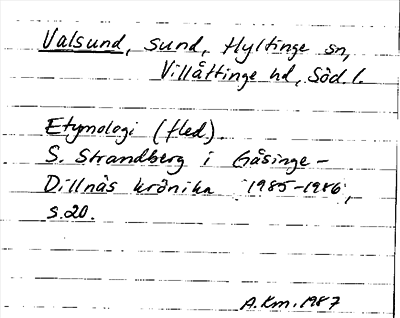 Valsund, sund, Hyltinge sn,
Villåttinge hd, Söd. l.
Etymologi (fled).
S. Strandberg i Gåsinge-
Dillnäs krönika 1985-1986,
s.20.
A.Km. 1987